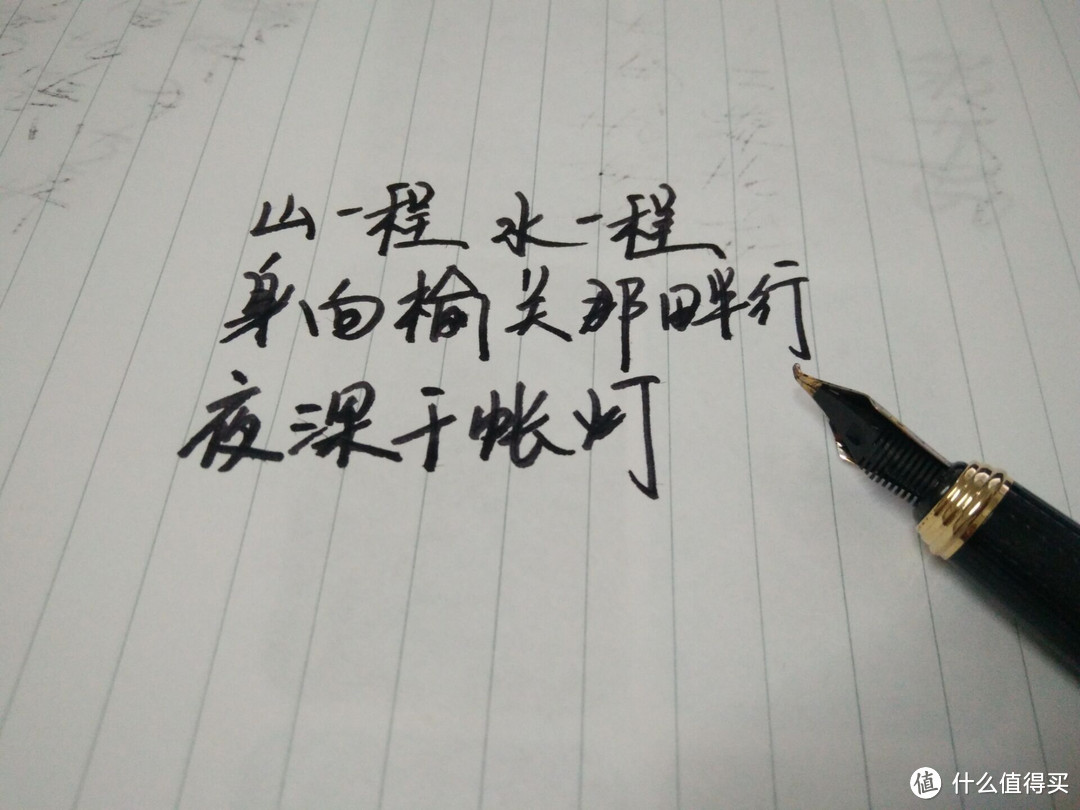 山一程 水一程
身向榆关那畔行
夜深千帐灯
值 什么值得买